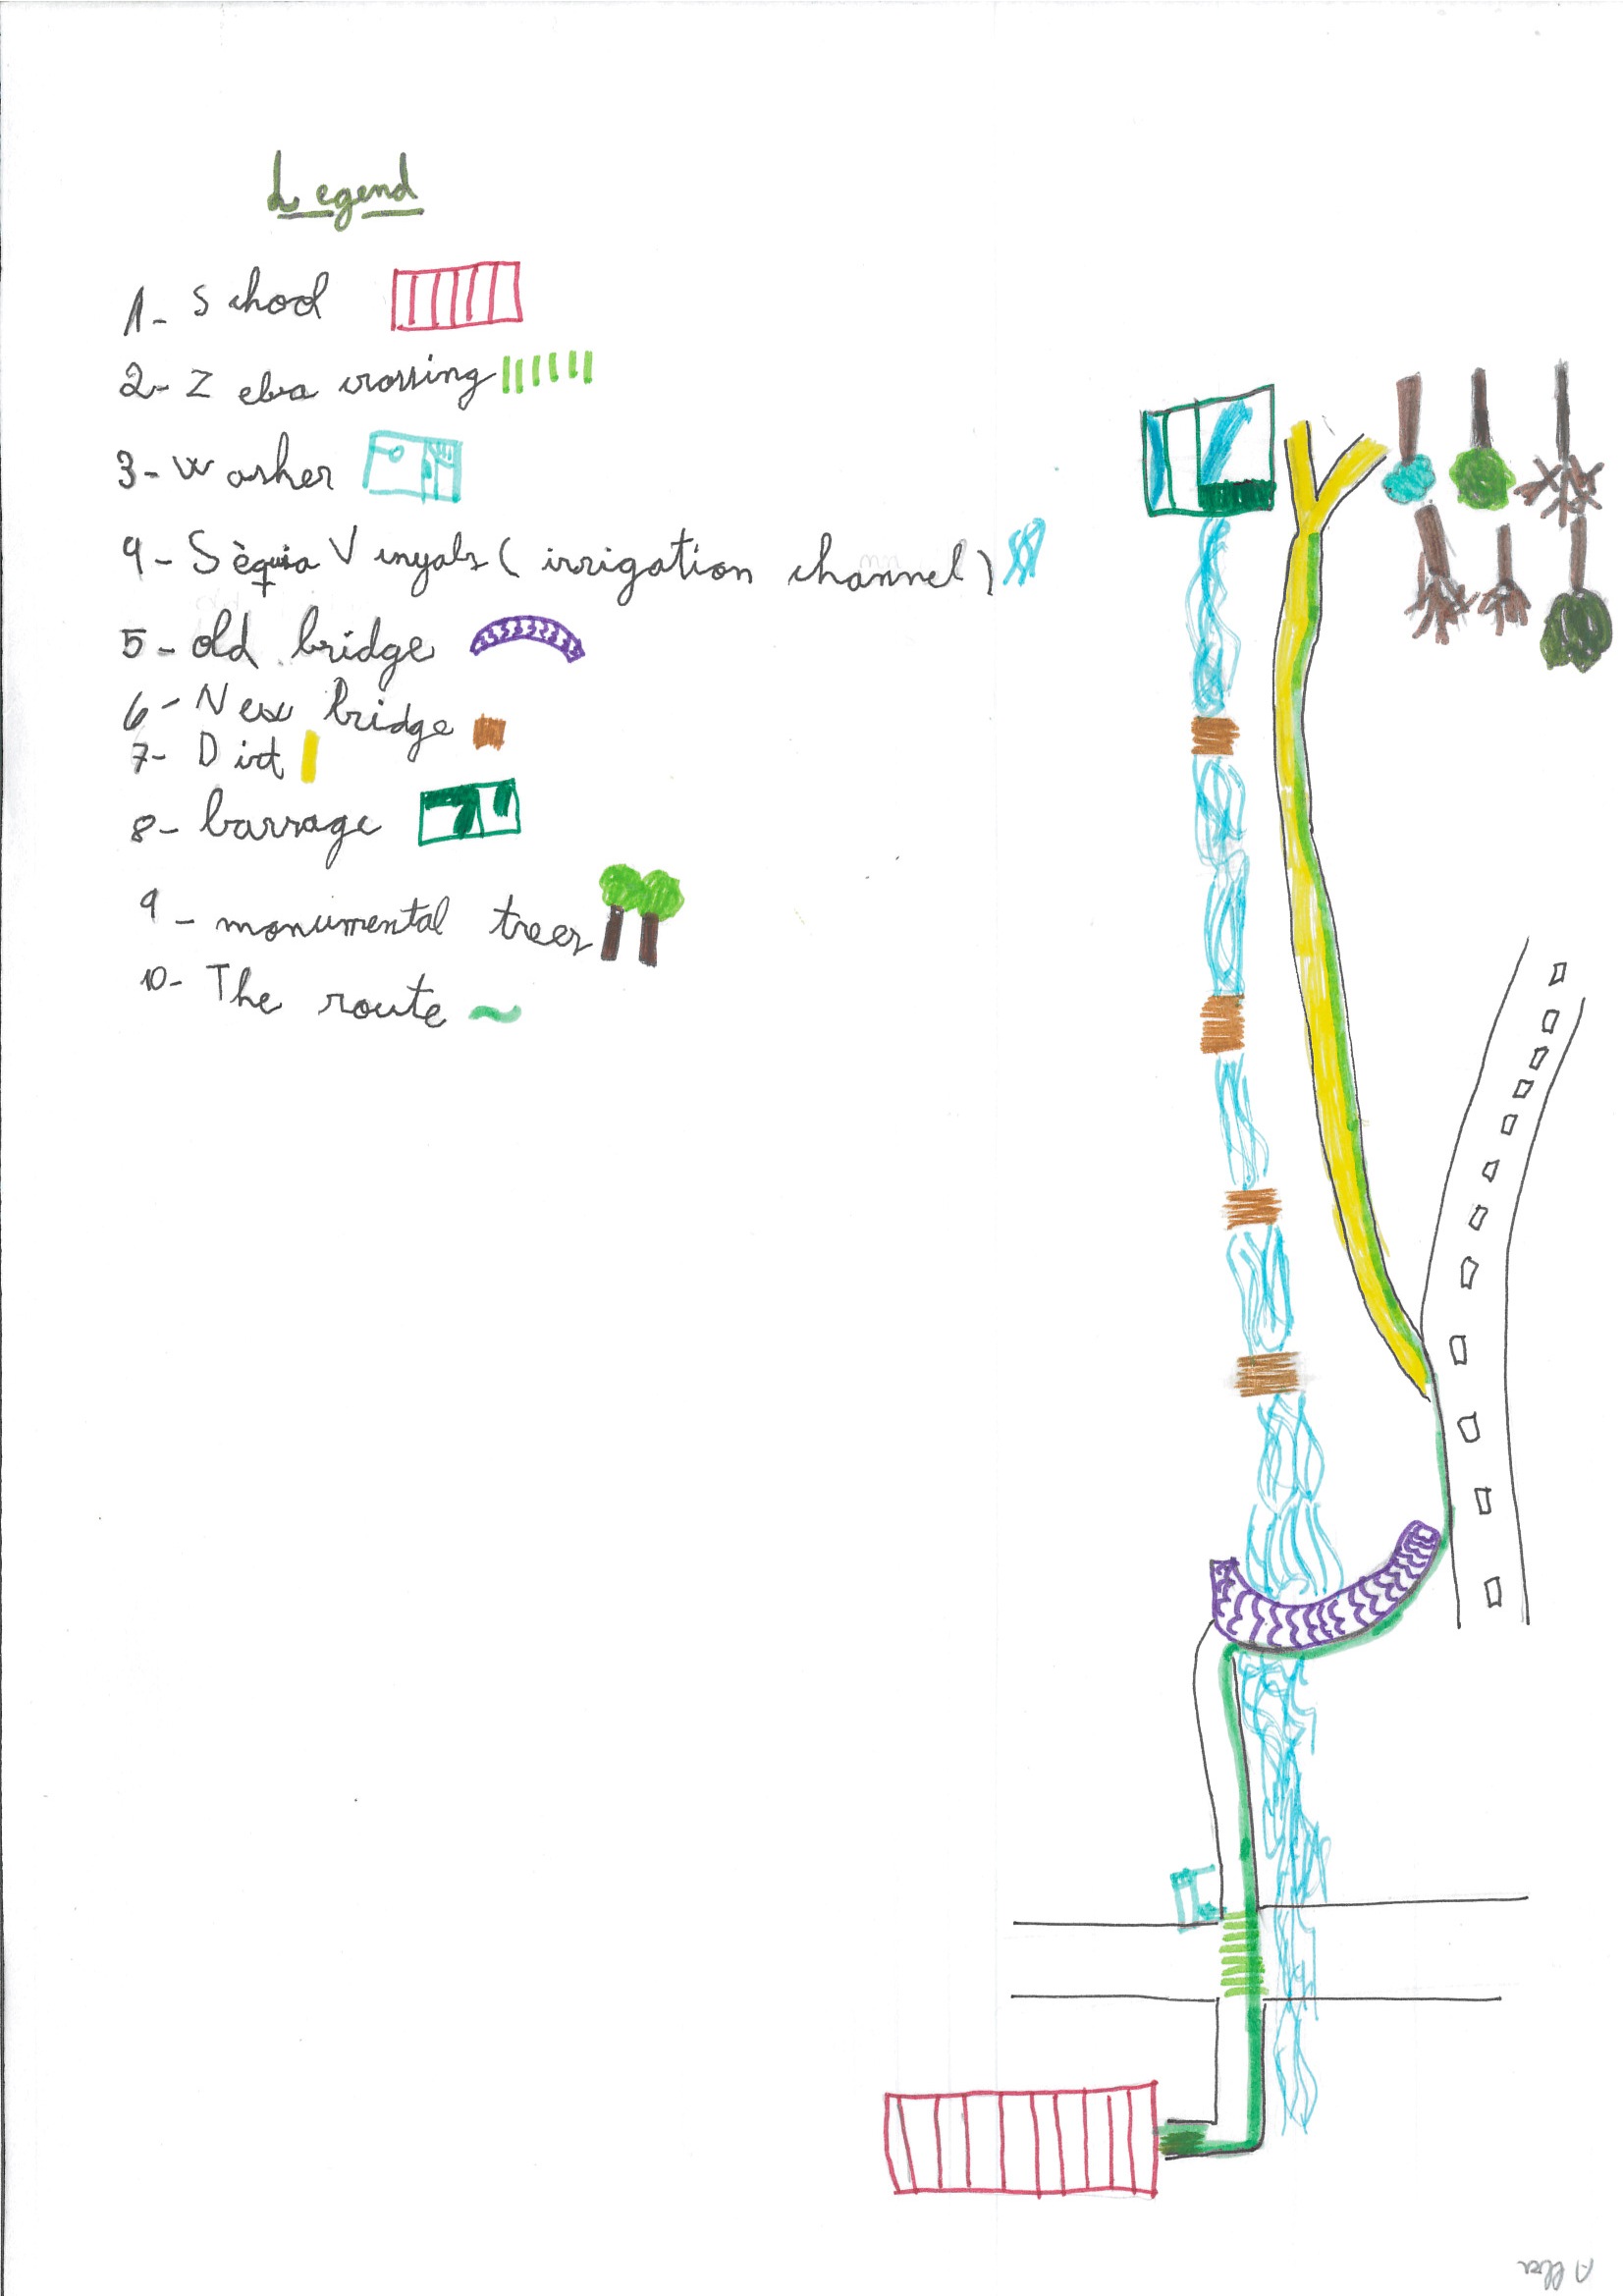 Legend
1- School
2- Zebra crossing
3- Washer
4- Sèquia Vinyals (irrigation channel)
5- old bridge
6- New bridge
7- Dirt
8- barrage
9- monumental trees
10- The route
Alba